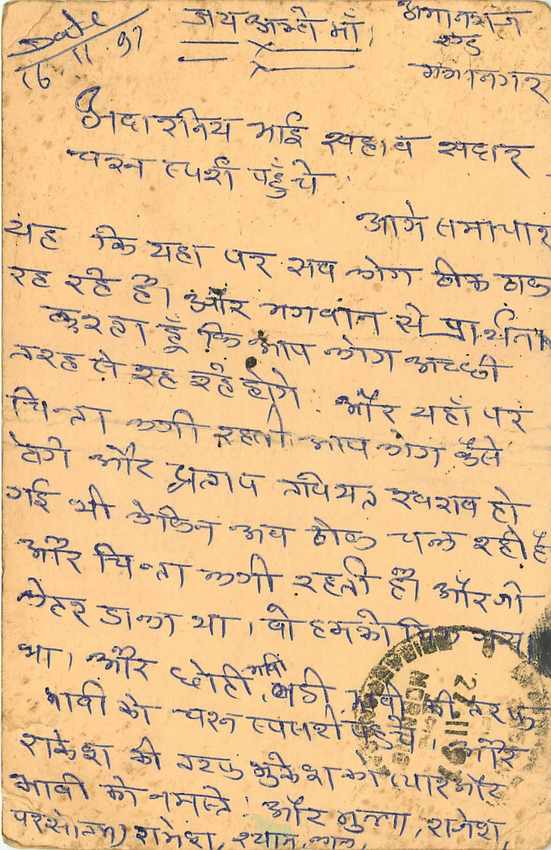 Date
16 11 97
जय अम्बे माँ
गंगानगर
आदारनिय भाई साहाब सादार
चरन स्पर्श पहुँचे
आगे समाचार
यह कि यहा पर सब लोग ठीक ठाक
रह रहे है। और भगवान से प्रार्थना
करता हूँ कि आप लोग अच्छी
तरह से रह रहे होगे. और यहाँ पर
चिन्ता लगी रहती आप लोग कैसे
होगे और प्रताप तबियत खराब हो
गई थी लेकिन अब ठीक चल रही है
और चिन्ता लगी रहती है। और जो
लेटर डाला था। वो हमको मिल गया
था। और छोटी भाबी, बडी भाबी की तरफ
भाबी को चरन स्पर्श पहुचे। और
राकेश की तरफ मुकेश को प्यार और
भाबी को नमस्ते। और मुन्ना, राजेश,
रामेश, श्याम, लाल,
22.11.97